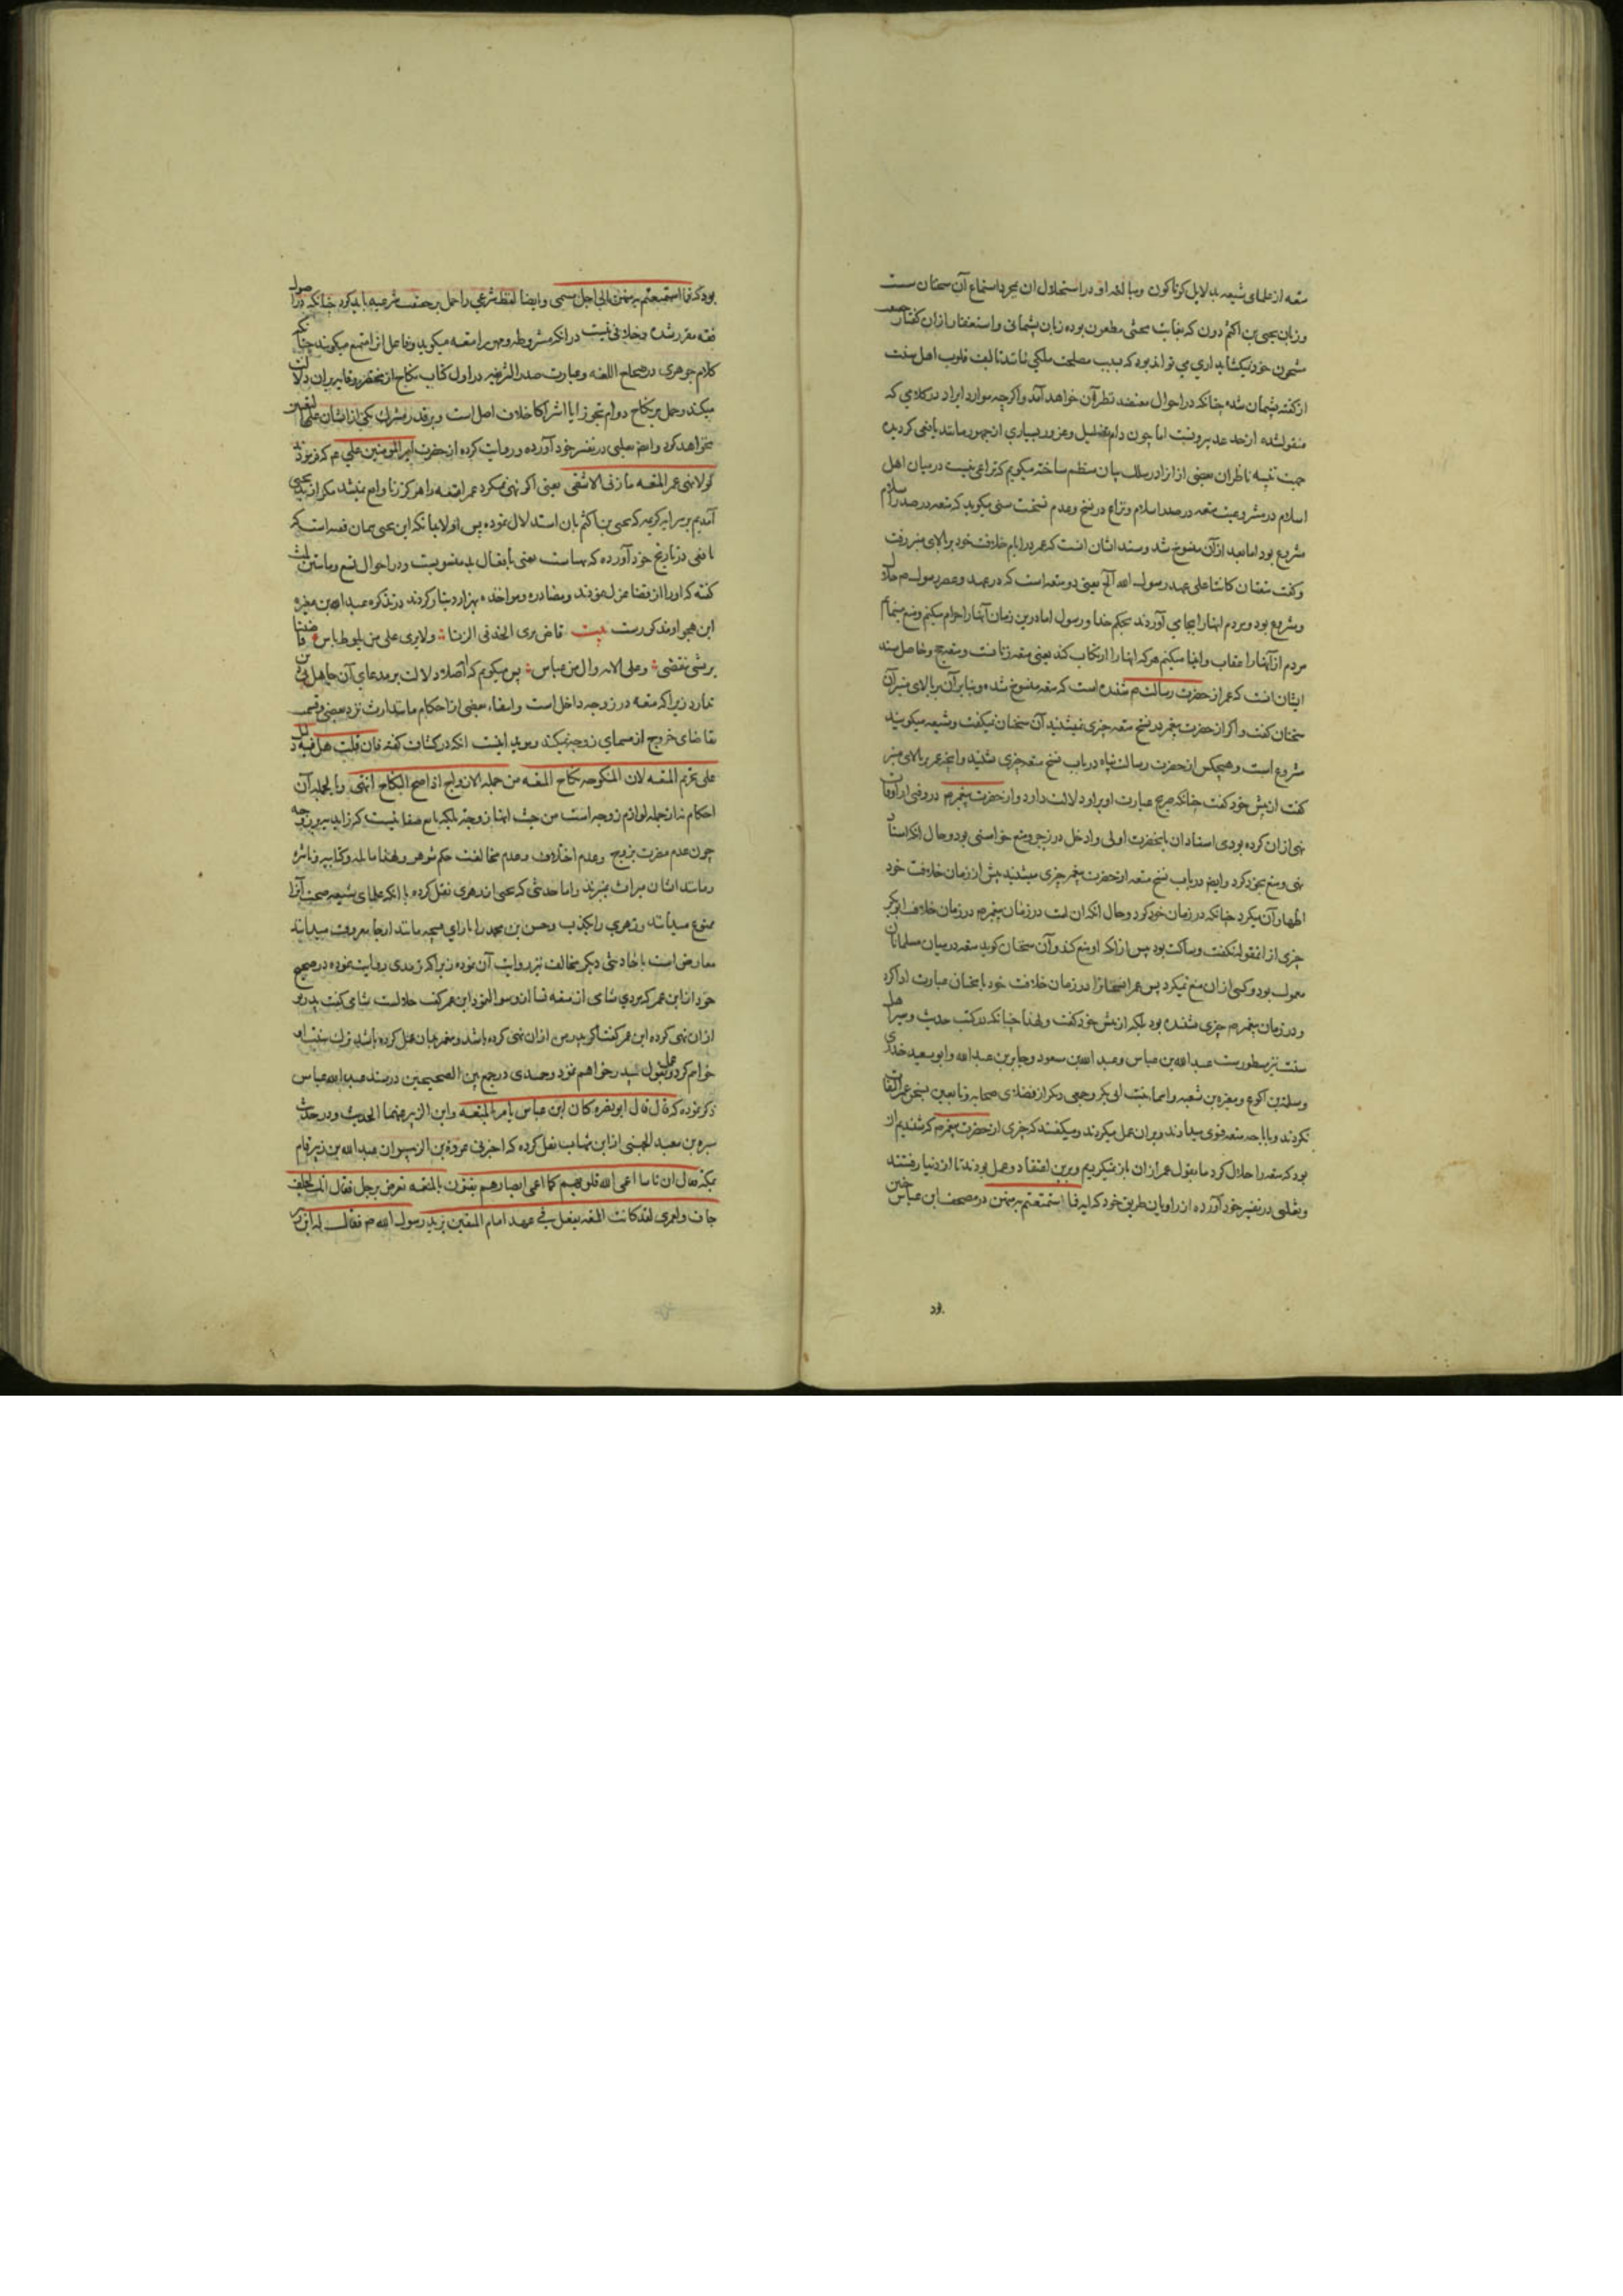 متعه از علمای شیعه بدلایل کوناکون ومبالغه او در استحلال ان بمجرد استماع آن سخنان سست
وزبان یحیی بن اکثم دون که بغایت مطعون بوده زبان پشمانی واستغفار ازان کفتار
شمون خود نیکشاید اری می تواند بود که بسبب مصلحت ملکی مانند تالیف قلوب اهل سنت
از کفته پشمان شده چنانکه در احوال معتضد نظیر آن خواهد آمد واکرچه موارد ایراد در کلامی که
منقول شده از حد عد بیرونست اما چون دام تضلیل وغرور بسیاری از جمهور مانند یافعی کردیده
جهت تنبیه ناظران بعضی از ایراد در سلک بیان منتظم ساخته میکویم که نزاعی نیست درمیان اهل
اسلام در مشروعیت متعه در صدر اسلام ونزاع در نسخ وعدم نسخست سنی میکوید که متعه در صدر اسلام
مشروع بود اما بعد از آن منسوخ شد وسند ایشان انست که عمر در ایام خلافت خود بر بالای منبر رفت
وکفت متعتان کانتا علی عهد رسول الله الخ یعنی دو متعه است که در عهد وعصر رسول م حلال
ومشروع بود ومردم انها را بجای آوردند بحکم خدا ورسول اما درین زمان آنها را حرام میکنم ومنع مینمایم
مردم از آنها را وعقاب وایذا میکنم هرکه انها را ارتکاب کند یعنی متعه زنا نست ومتعه حج وحاصل سند
ایشان انست که عمر از حضرت رسالت م شنیده است که متعه منسوخ شده وبنابرآن بر بالای منبر آن
سخنان کفت واکر از حضرت پیغمبر در نسخ متعه چیزی نمیشنید آن سخنان نمیکفت وشیعه میکویند
مشروع است وهیچکس از حضرت رسالت پناه در باب نسخ متعه چیزی نشنید وانچه عمر بر بالای منبر
کفت از پیش خود کفت چنانکه صریح عبارت او برو دلالت دارد واز حضرت پیغمبر م در وقتی از اوقات
نهی ازان کرده بودی اسناد ان بانحضرت اولی وادخل در زجر ومنع خواستی بود وحال انکه اسناد
نهی ومنع بخود کرد وایضا در باب نسخ متعه از حضرت پیغمبر چیزی میشنید پیش از زمان خلافت خود
اظهار آن میکرد چنانکه در زمان خود کرد وحال انکه ان در زمان پیغمبر م در زمان خلافت ابوبکر
چیزی از انقوله نکفت وساکت بود پس ازانکه او منع کند وآن سخنان کوید متعه درمیان مسلمانان
معمول بود وکسی ازان منع نمیکرد پس عمر در زمان خلافت خود باختیار عبارت ادا کرد
ودر زمان پیغمبر م چیزی نشنیده بود بلکه از پیش خود کفت ولهذا چنانکه در کتب حدیث وسیر اهل
سنت نیز مسطور است عبدالله بن عباس وعبدالله بن مسعود وجابر بن عبدالله وابوسعید خدری
وسلمة بن اکوع ومغیره بن شعبه واسما بنت ابی بکر وجمعی دیکر از فضلای صحابه وتابعین بسخن عمر التفات
نکردند وباباحه متعه فتوی میدادند وبران عمل میکردند ومیکفتند که چیزی از حضرت پیغمبر م که شنیدیم از
بود که متعه را حلال کرد ما بقول عمر ازان باز نمیکردیم وبرین اعتقاد وعمل بودند تا از دنیا رفتند
وثعلبی در تفسیر خود آورده از راویان طریق خود که ایه فما استمتعتم به منهن در مصحف ابن عباس چنین
بود
بود که فما استمتعتم به منهن الی اجل مسمی وایضا لفظ شرعی را حمل بر حقیقت شرعیه باید کرد چنانکه در اصول
فقه مقرر شده وخلافی نیست درانکه مشروطه ومهر برا متعه میکوید وفاعل انرا متمتع میکویند چنانکه
کلام جوهری در صحاح اللغه وعبارت صدر الشریعه در اول کتاب نکاح از مختصر وقایه بران دلالت
میکند وحمل بر نکاح دوام تجوز ایا اشتراکا خلاف اصل است وبر تقدیر مشترک یکی از ایشان علی التعیین
نخواهد کرد وایضا ثعلبی در تفسیر خود آورده وروایت کرده از حضرت امیر المومنین علی ع م که فرمودند
لولا نهی عمر المتعه ما زنی الا شقی یعنی اکر نهی نمیکرد عمر امتعه را هرکز زنا واقع نمیشد مکر از بدبختی
آمدیم بر سر ایه کریمه که یحیی بن اکثم بان استدلال نموده پس اولا بدانکه این یحیی همان قصه است که
یافعی در تاریخ خود آورده که بعنی بافعال بد منسوبست ودر احوال تسع وماتین
کفته که او را از قضا عزل نمودند ومصادره ومواخذه بهزار دینار کردند در تذکره عبدالله بن مغیره
این هجو او مذکور است بیت قاض یری الحد فی الزنا ولا یری علی من یلوط باس قاضینا
یرتشی وعلی الامه وال من عباس پس میکویم که اصلا دلالت بر مدعای آن جاهل دون
ندارد زیرا که متعه در زوجه داخل است وانتفاء بعضی از احکام مانند ارث نزد بعضی وقسمت
تقاضای خروج از مسمای زوجه نمیکند وموید اینست انکه در کشاف کفته فان قلت هل فیه دلیل
علی تحریم المتعه لان المنکوحه بنکاح المتعه من جمله الازواج اذا صح النکاح انتهی وبالجمله آن
احکام نه از جمله لوازم زوجه است من حیث انها زوجه بلکه تابع صفاتیست که زاید بر زوجه
چون عدم مضرت بزوج وعدم اختلاف وعدم مخالفت حکم شوهر ولهذا مملوکه وکتابیه وناشزه
ومانند ایشان میراث نمیبرند واما حدیثی که یحیی از زهری نقل کرده باانکه علمای شیعه صحت آنرا
ممنوع میدانند وزهری را بکذب
معارض است باحادیثی دیکر مخالف نیز روایت آن نموده زیرا که ترمدی روایت نموده در صحیح
خود از ابن عمر که مردی شامی از متعه نسا ازو سوال نمود ابن عمر کفت حلالست شامی کفت پدر تو
ازان نهی کرده ابن عمر کفت اکر پدر من ازان نهی کرده باشد وپیغمبر بدان عمل کرده باشد ترک سنت او
خواهم کرد وعمل بقول پدر خواهم نمود وحمیدی در جمع بین الصحیحین در مسند عبدالله عباس
ذکر نموده که قال قال ابو نضره کان ابن عباس یامر بالمتعه وابن الزبیر ینهی عنها الحدیث ودر حدیث
سبره بن معبد الجهنی از ابن شهاب نقل کرده که اخبرنی عروه بن الزبیر ان عبدالله بن زبیر قام
بمکه فقال ان ناسا اعمی الله قلوبهم کما اعمی ابصارهم یفتون بالمتعه یعرض برجل فقال انک لجلف
جاف ولعمری لقد کانت المتعه یفعل فی عهد امام المتقین یرید رسول الله م فقال له ابن زبیر